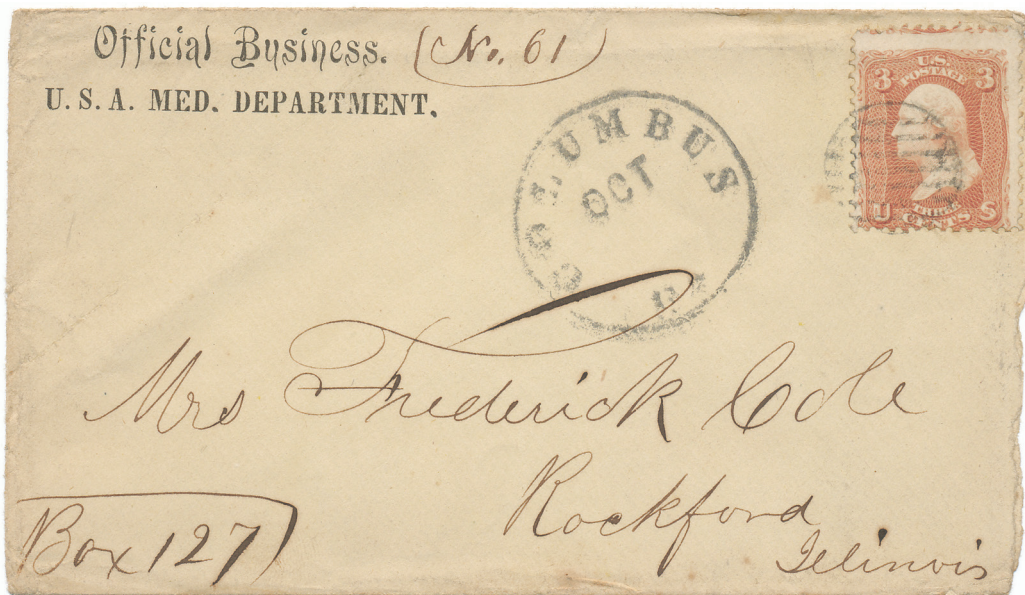 Official Business. (No. 61)
U. S. A. MED. DEPARTMENT.
COLUMBUS
OCT
3 U.S. 3
POSTAGE
THREE
U CENTS S
Mrs Frederick Cole
Rockford
Illinois
Box 127